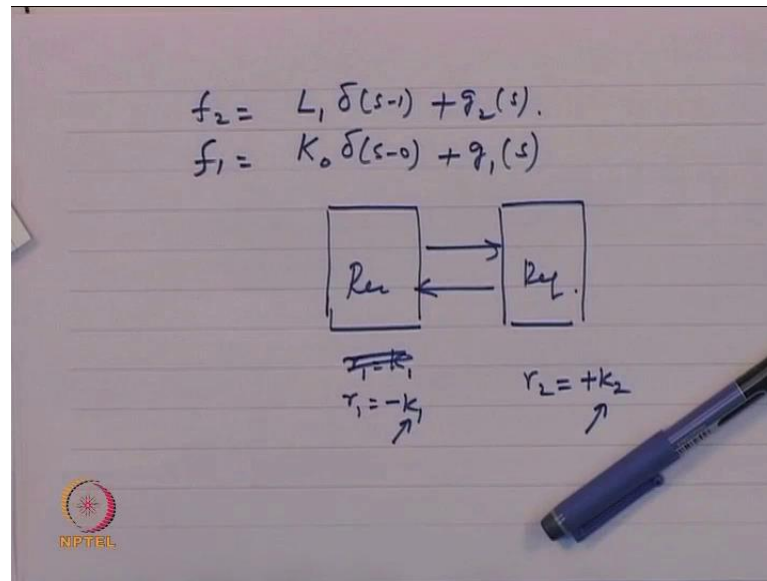 f₂ = L₁ δ(s-1) + g₂(s).
f₁ = K₀ δ(s-0) + g₁(s)
Rec
r₁ = k₁
r₁ = -k₁
r₂ = +k₂
NPTEL